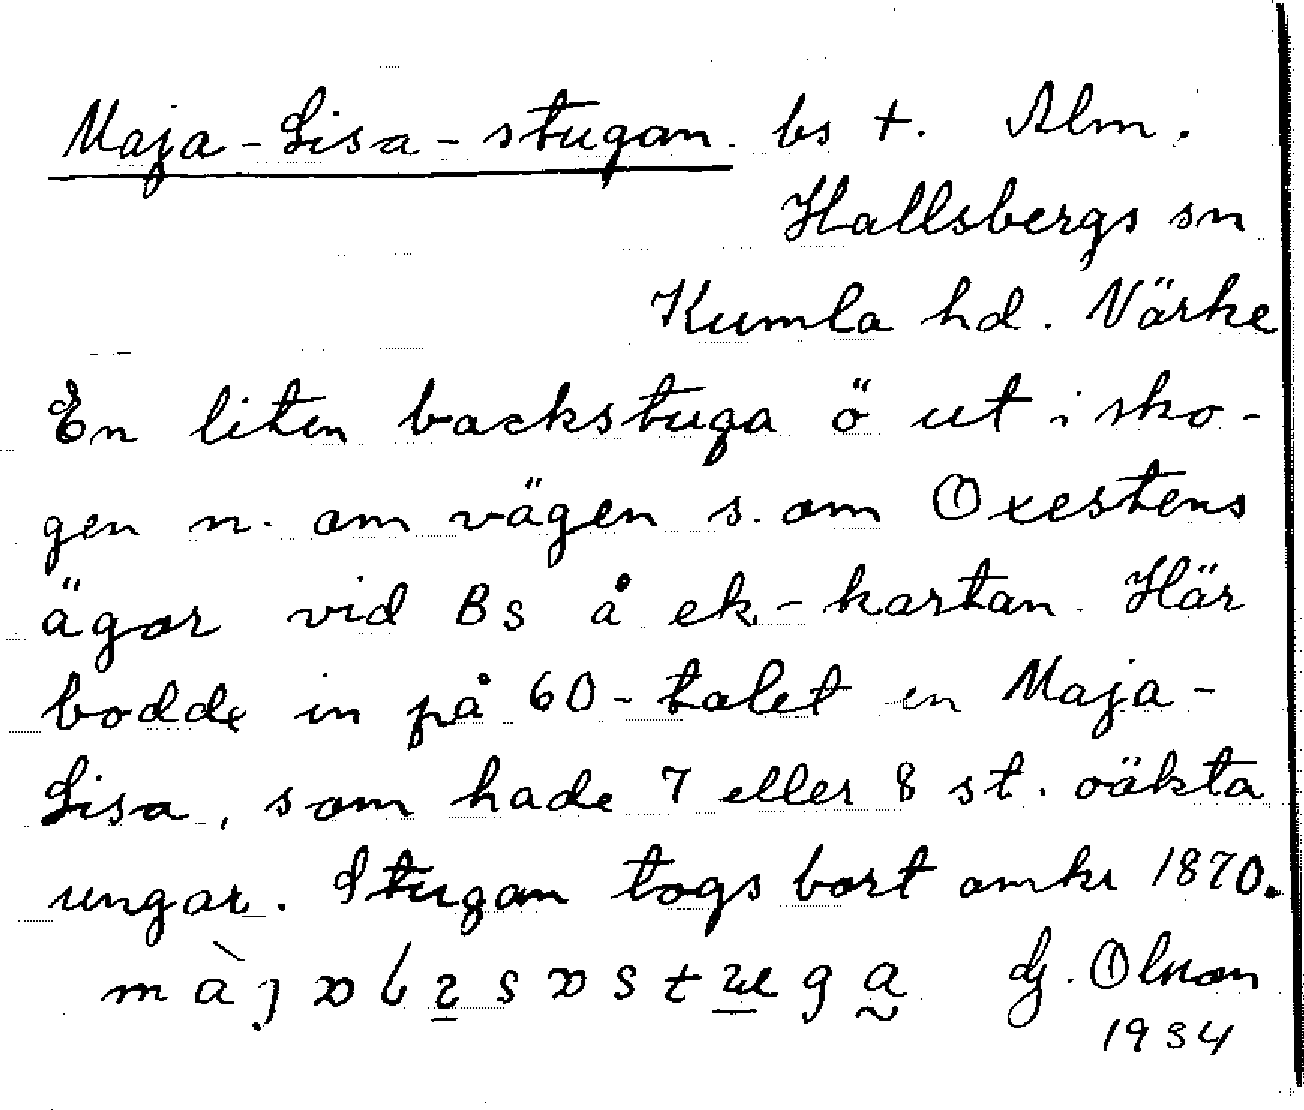 Maja-Lisa-stugan. bs t. Alm.
Hallsbergs sn
Kumla hd. Närke
En liten backstuga ö ut i sko-
gen n. om vägen s. om Oxestens
ägor vid Bs å ek-kartan. Här
bodde in på 60-talet en Maja-
Lisa, som hade 7 eller 8 st. oäkta
ungar. Stugan togs bort omkr 1870.
Olsson
1934